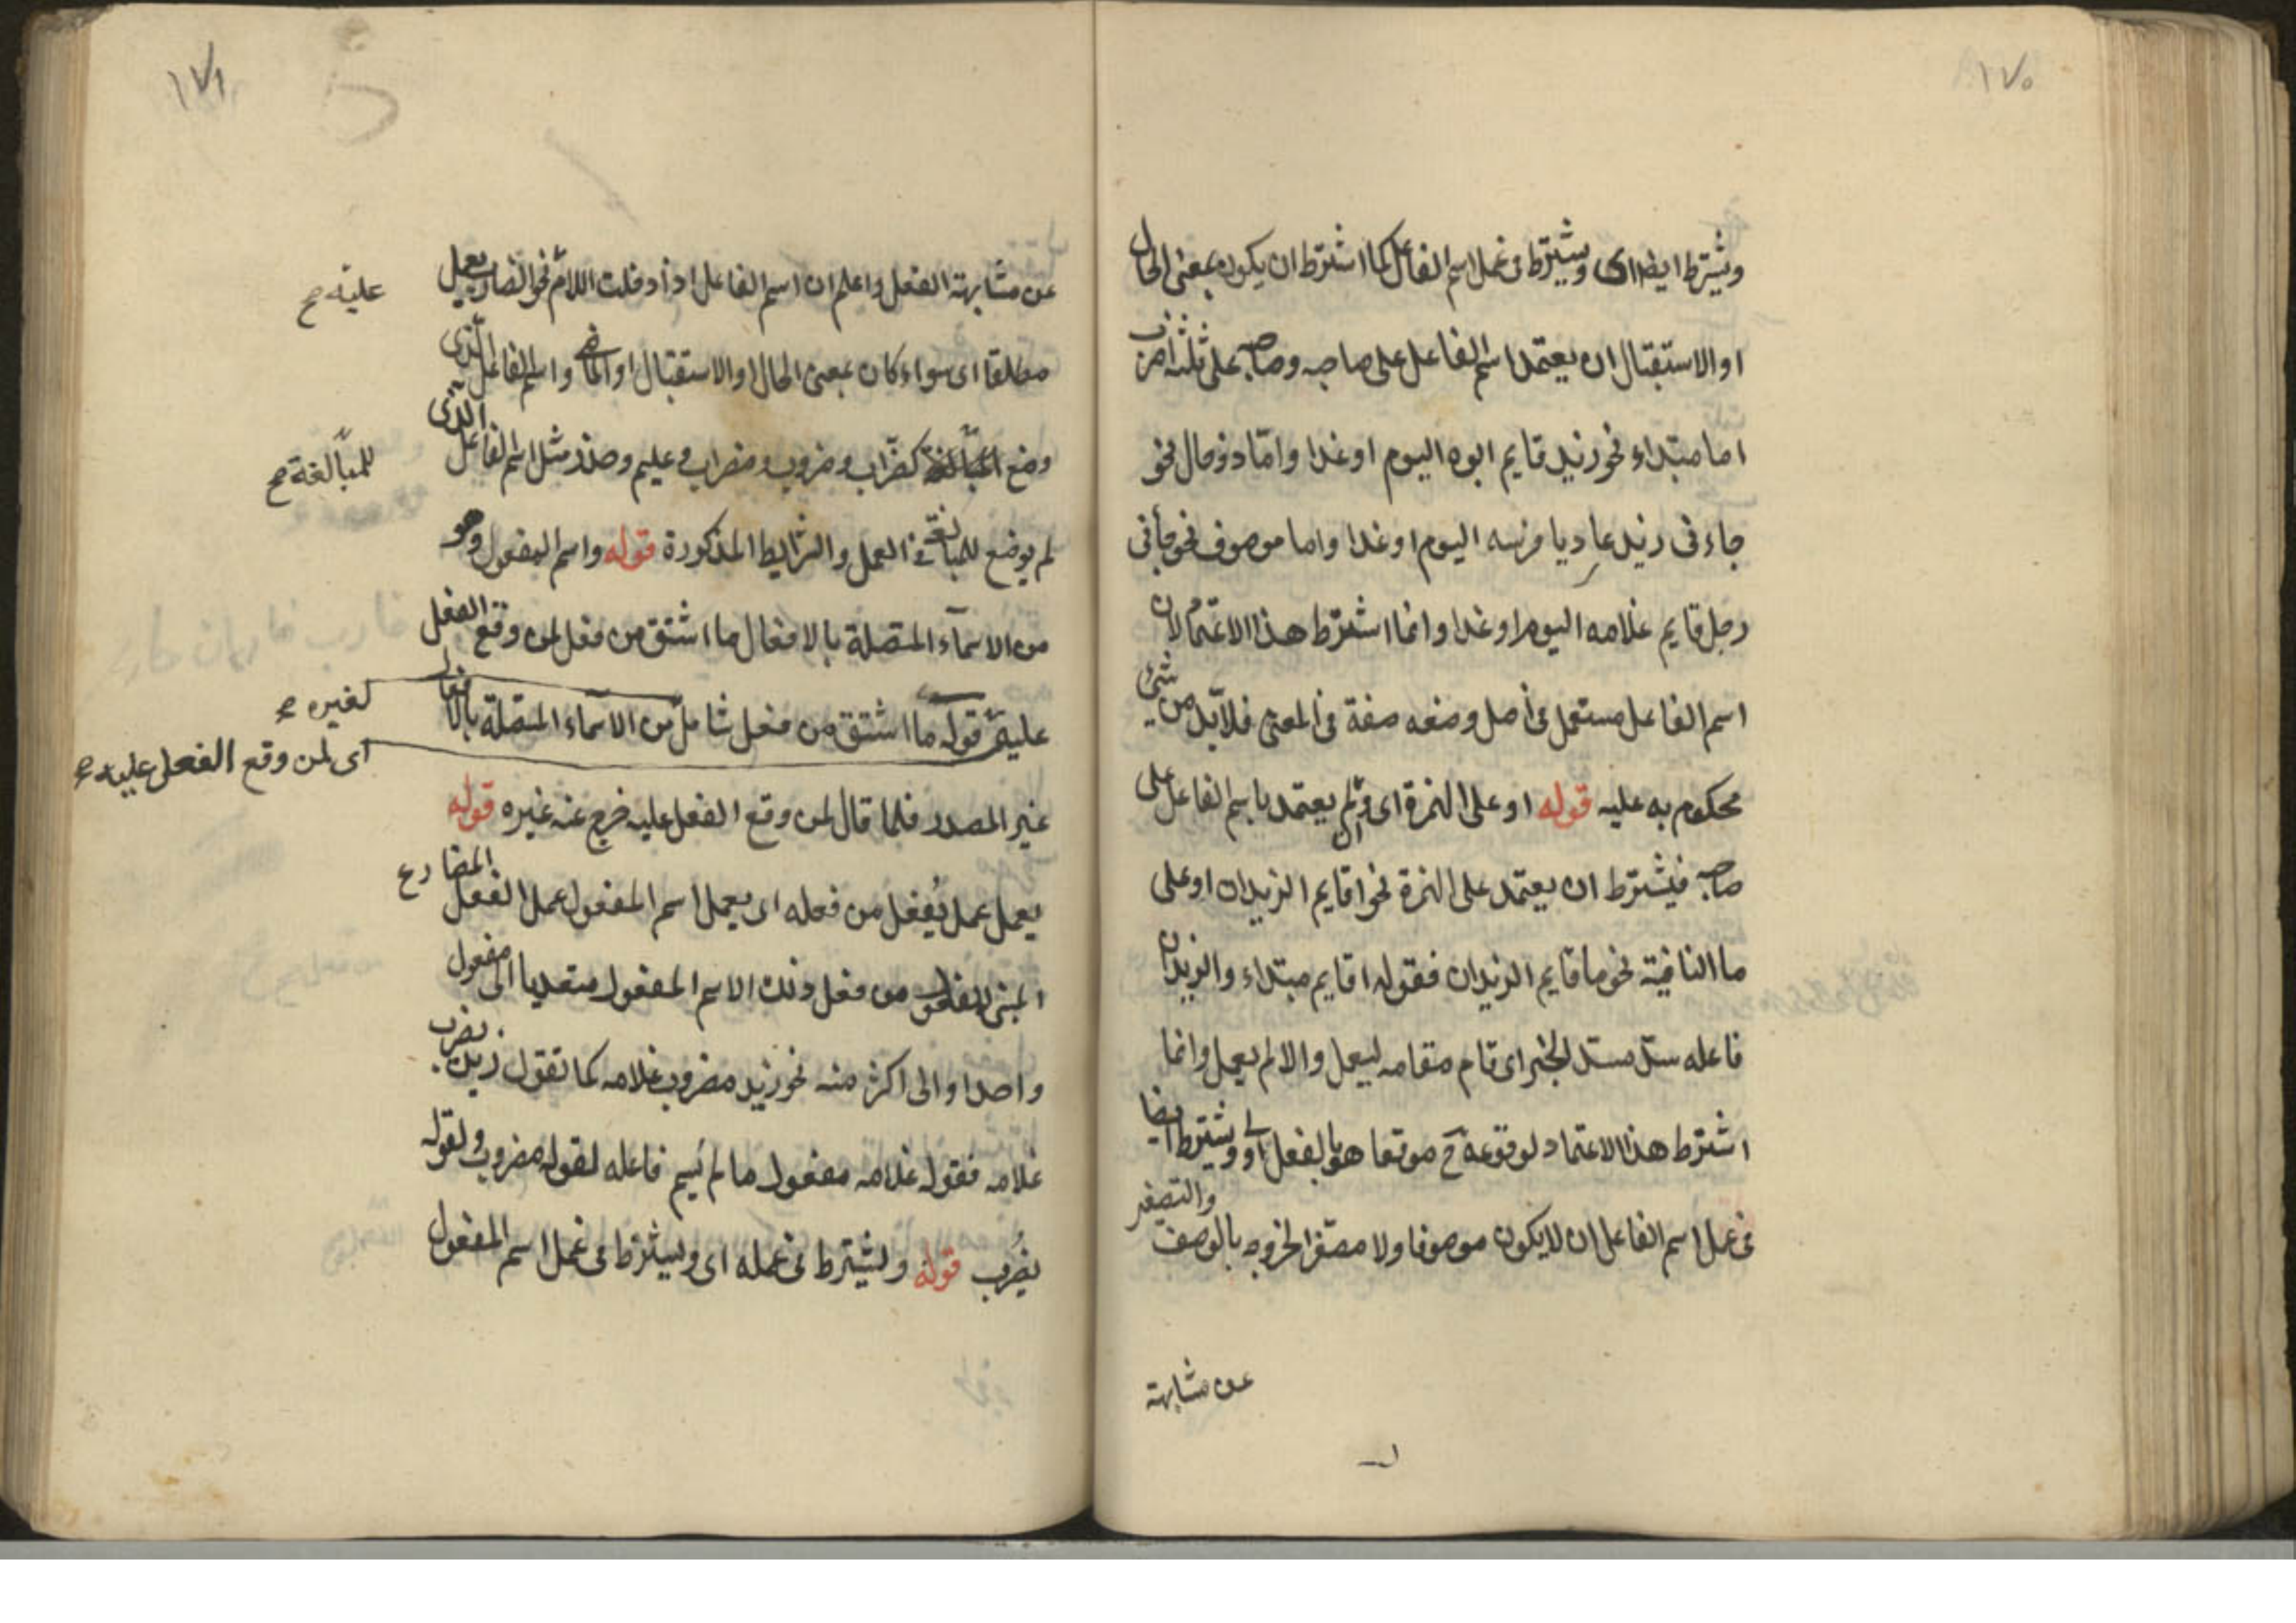 ١٧٠
ويشترط ايضا اى ويشترط فى عمل اسم الفاعل كما اشترط ان يكون بمعنى الحال
او الاستقبال ان يعتمد اسم الفاعل على صاحبه وصاحبه على ثلثة اضرب
اما مبتداء نحو زيد قايم ابوه اليوم او غدا واما ذو حال نحو
جاءنى زيد عاديا فرسه اليوم او غدا واما موصوف نحو جأنى
رجل قايم غلامه اليوم او غدا وانما اشترط هذا الاعتماد لان
اسم الفاعل مستعمل فى اصل وضعه صفة فى المعنى فلا بد من شئ
محكوم به عليه قوله او على الهمزة اى وان لم يعتمد باسم الفاعل على
صاحبه فيشترط ان يعتمد على الهمزة نحو اقايم الزيدان او على
ما النافية نحو ما قايم الزيدان فقوله اقايم مبتداء والزيدان
فاعله سد مسد الخبر اى قام مقامه ليعمل والا لم يعمل وانما
اشترط هذا الاعتماد لوقوعه ح موقعا هو بالفعل اولى ويشترط ايضا
فى عمل اسم الفاعل ان لا يكون موصوفا ولا مصغرا لخروجه بالوصف والتصغير
عن مشابهة
١٧١
عن مشابهة الفعل واعلم ان اسم الفاعل اذا دخلت اللام نحو الضارب يعمل
عليه صح
مطلقا اى سواء كان بمعنى الحال او الاستقبال او الماضى واسم الفاعل الذى
وضع المبالغة كضرّاب وضروب ومضراب وعليم وحذر مثل اسم الفاعل الذى
للمبالغة صح
لم يوضع للمبالغة فى العمل والشرايط المذكورة قوله واسم المفعول وهو
من الاسماء المتصلة بالافعال ما اشتق من فعل لمن وقع الفعل
عليه قوله ما اشتق من فعل شامل من الاسماء المتصلة بالافعال
لغيره صح
اى لمن وقع الفعل عليه صح
غير المصدر فلما قال لمن وقع الفعل عليه خرج عنه غيره قوله
يعمل عمل يُفعل من فعله اى يعمل اسم المفعول عمل الفعل المضارع
المبنى للمفعول من فعل ذلك الاسم المفعول متعديا الى مفعول
واحد او الى اكثر منه نحو زيد مضروب غلامه كما تقول زيد يضرب
غلامه فقوله غلامه مفعول ما لم يسم فاعله لقوله مضروب ولقوله
يُضرب قوله ويشترط فى عمله اى ويشترط فى عمل اسم المفعول